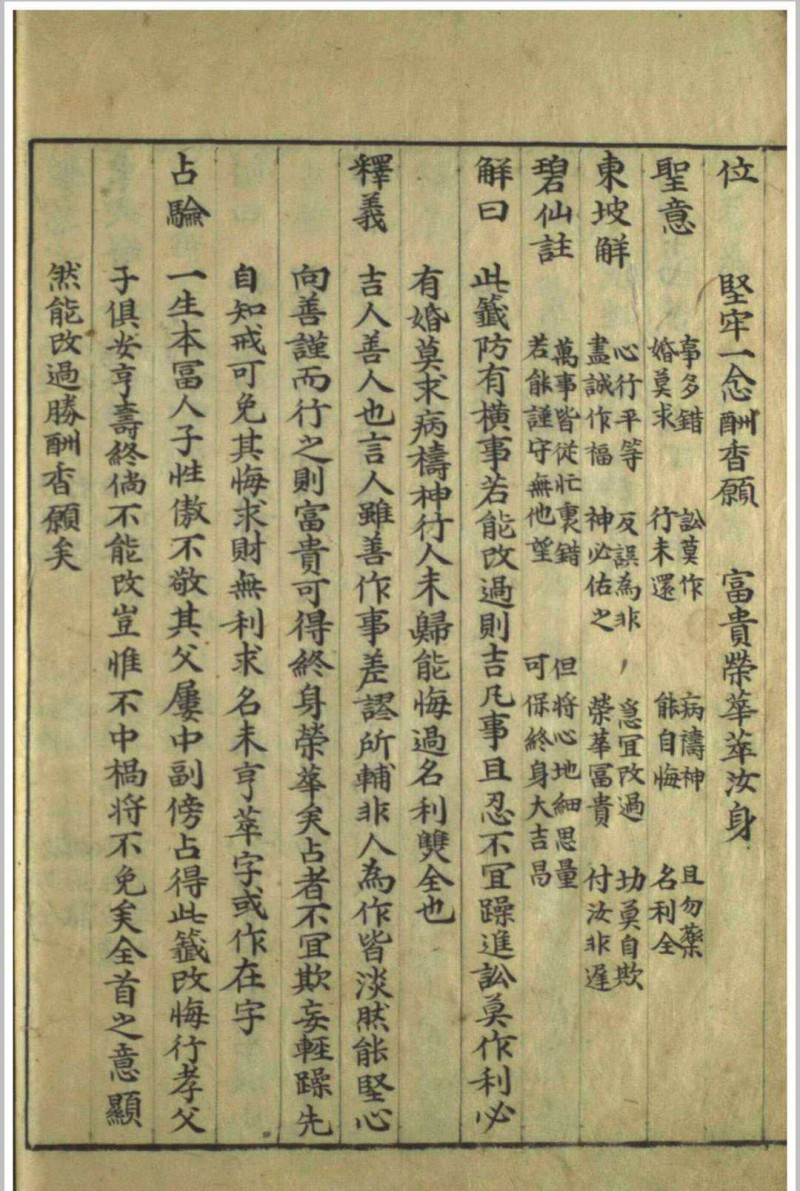 位　堅牢一念酬香願　富貴榮華萃汝身
聖意　事多錯　訟莫作　病禱神　且勿藥
婚莫求　行未還　能自悔　名利全
東坡解　心行平等　反誤為非　急宜改過　功莫自欺
盡誠作福　神必佑之　榮華富貴　付汝非遲
碧仙註　萬事皆從忙裏錯　但將心地細思量
若能謹守無他望　可保終身大吉昌
解曰　此籤防有橫事若能改過則吉凡事且忍不宜躁進訟莫作利必
有婚莫求病禱神行人未歸能悔過名利雙全也
釋義　吉人善人也言人雖善作事差謬所輔非人為作皆淡然能堅心
向善謹而行之則富貴可得終身榮華矣占者不宜欺妄輕躁先
自知戒可免其悔求財無利求名未亨萃字或作在字
占驗　一生本冨人子性傲不敬其父屢中副傍占得此籤改悔行孝父
子俱安亨壽終倘不能改豈惟不中禍將不免矣全首之意顯
然能改過勝酬香願矣